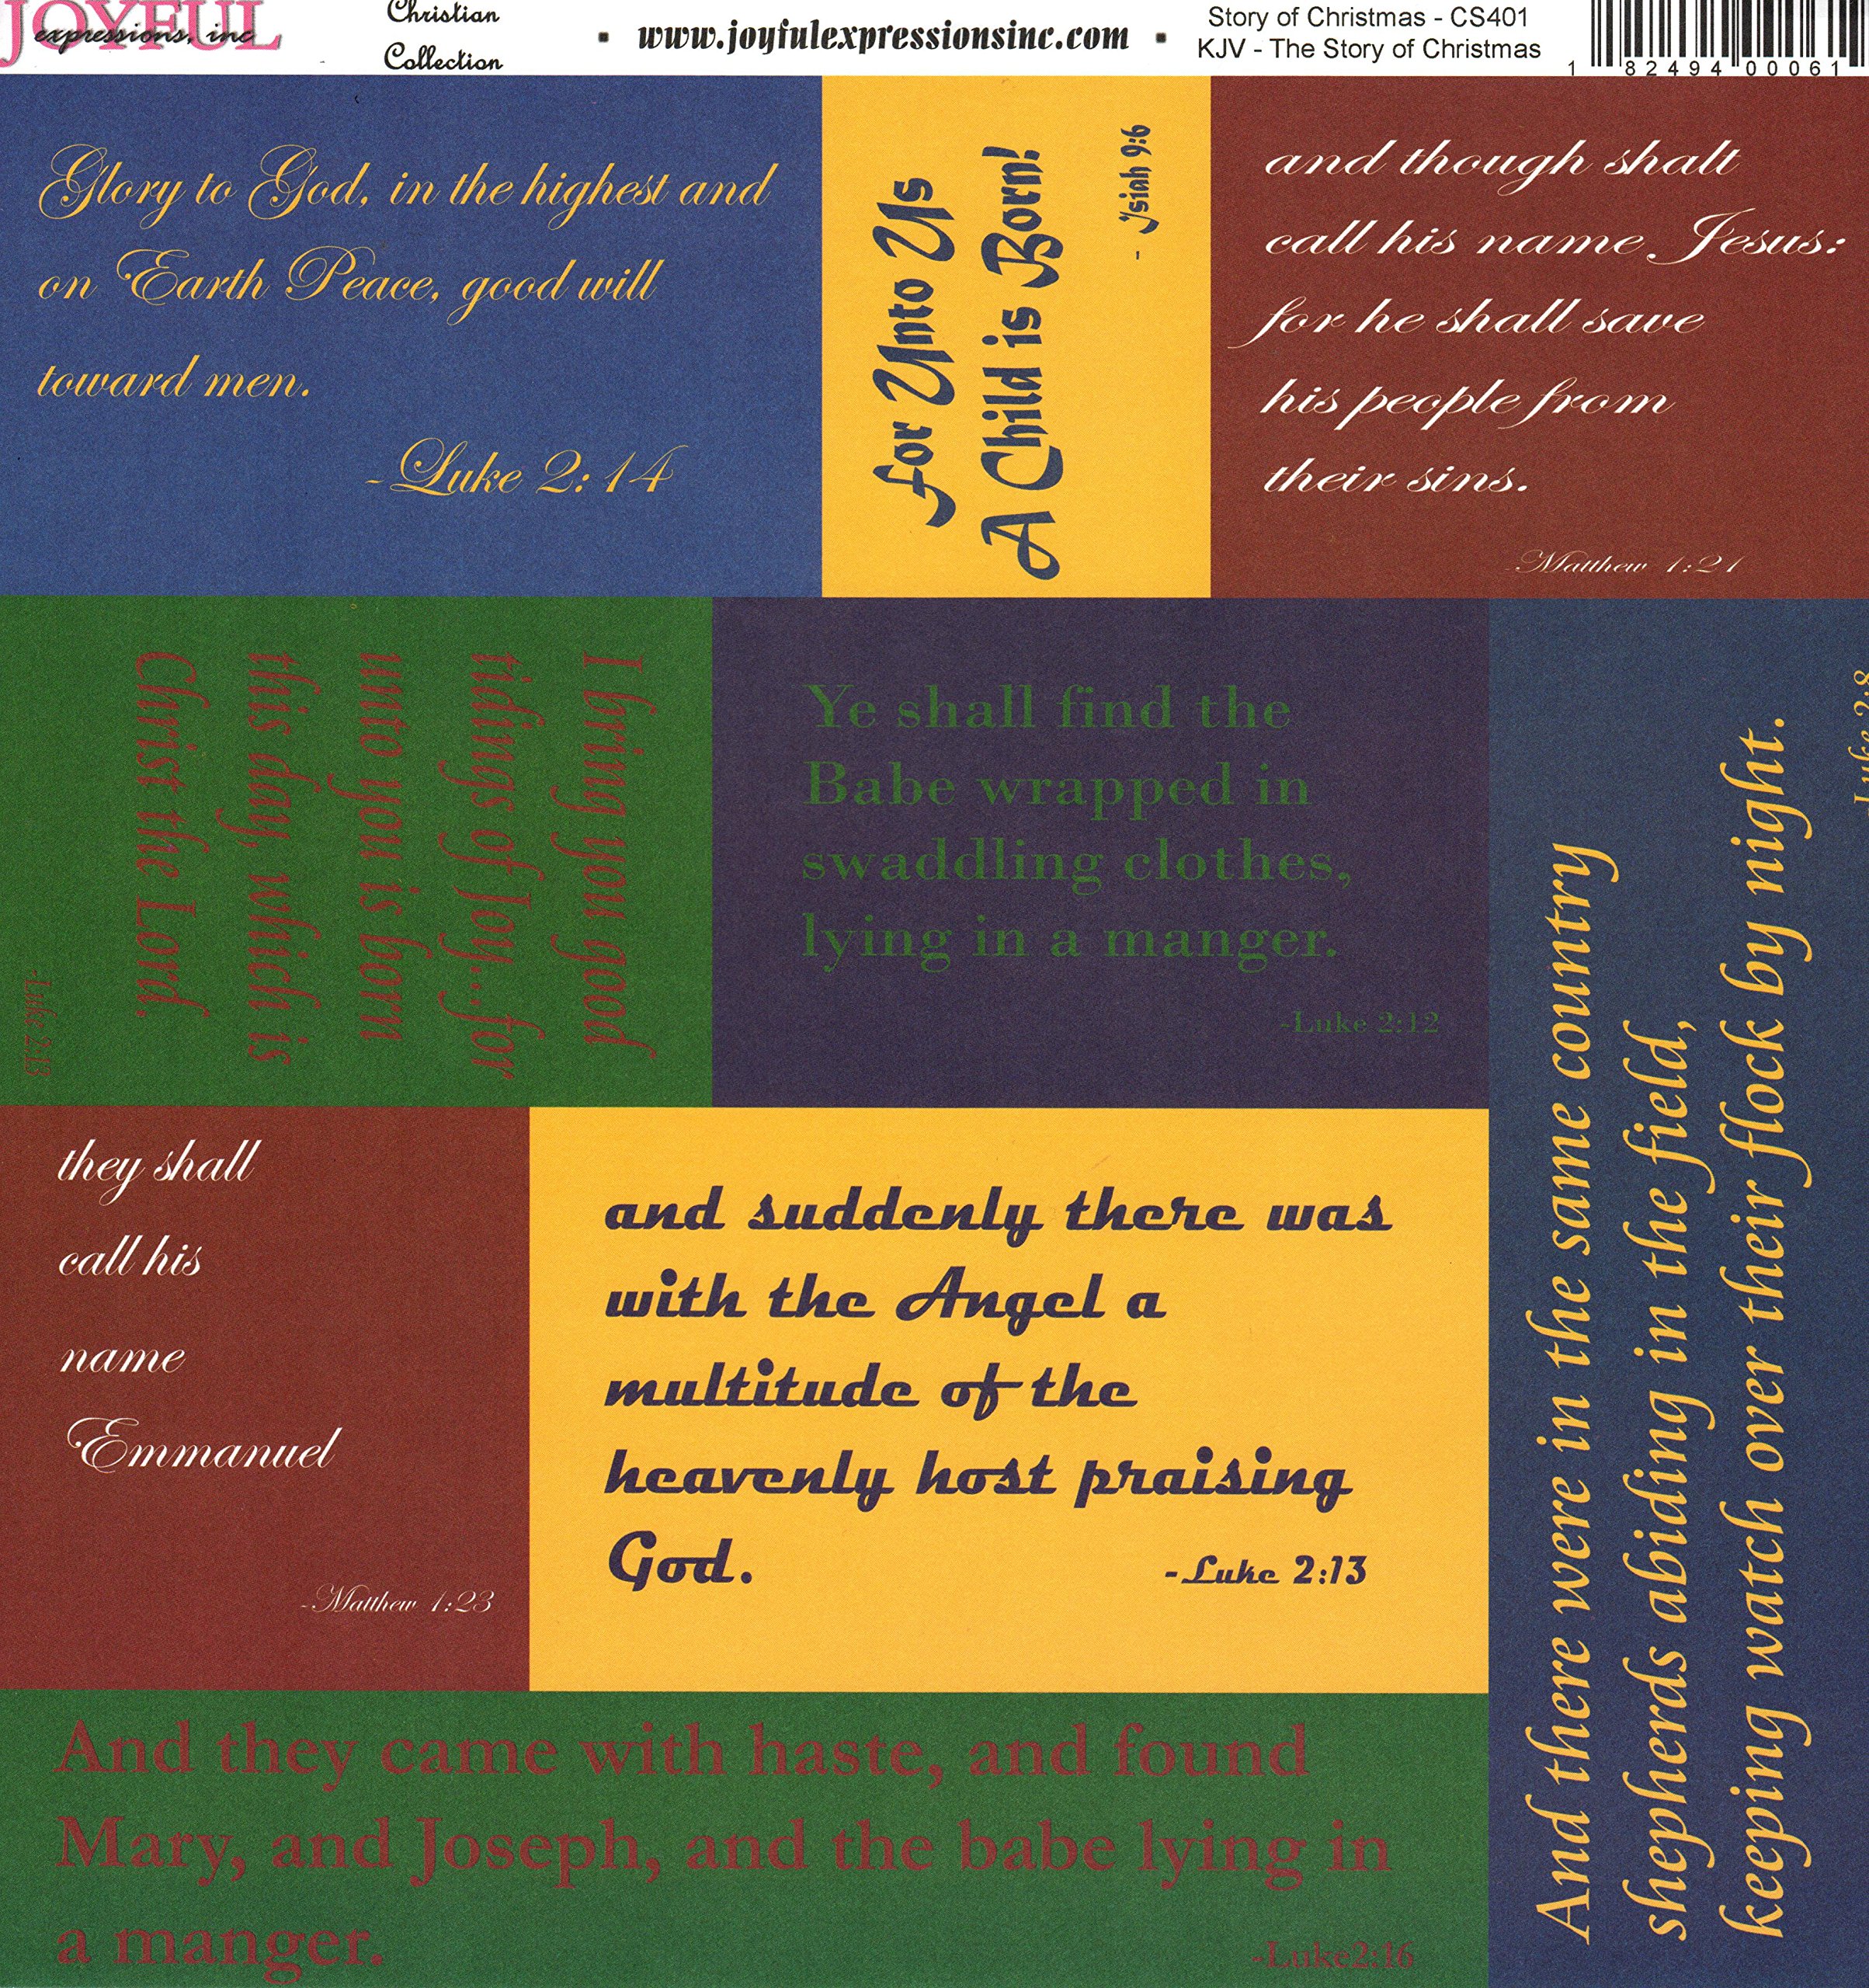 JOYFUL
expressions, inc
Christian
Collection
www.joyfulexpressionsinc.com
Story of Christmas - CS401
KJV - The Story of Christmas
1 82494 00061
Glory to God, in the highest and
on Earth Peace, good will
toward men.
-Luke 2:14
For Unto Us
A Child is Born!
- Isiah 9:6
and though shalt
call his name Jesus:
for he shall save
his people from
their sins.
-Matthew 1:21
I bring you good
tidings of Joy....for
unto you is born
this day, which is
Christ the Lord.
-Luke 2:13
Ye shall find the
Babe wrapped in
swaddling clothes,
lying in a manger.
-Luke 2:12
And there were in the same country
shepherds abiding in the field,
keeping watch over their flock by night.
Luke 2:8
they shall
call his
name
Emmanuel
-Matthew 1:23
and suddenly there was
with the Angel a
multitude of the
heavenly host praising
God.
-Luke 2:13
And they came with haste, and found
Mary, and Joseph, and the babe lying in
a manger.
-Luke2:16